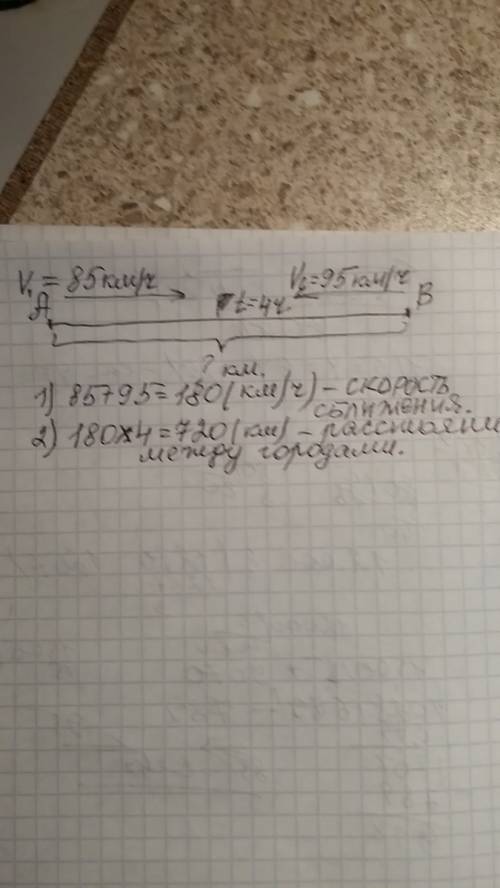 V₁ = 85 км/ч V₂=95 км/ч
A t=4ч. B
? км.
1) 85+95=180 (км/ч) – скорость
сближения.
2) 180×4=720 (км) – расстояни
между городами.